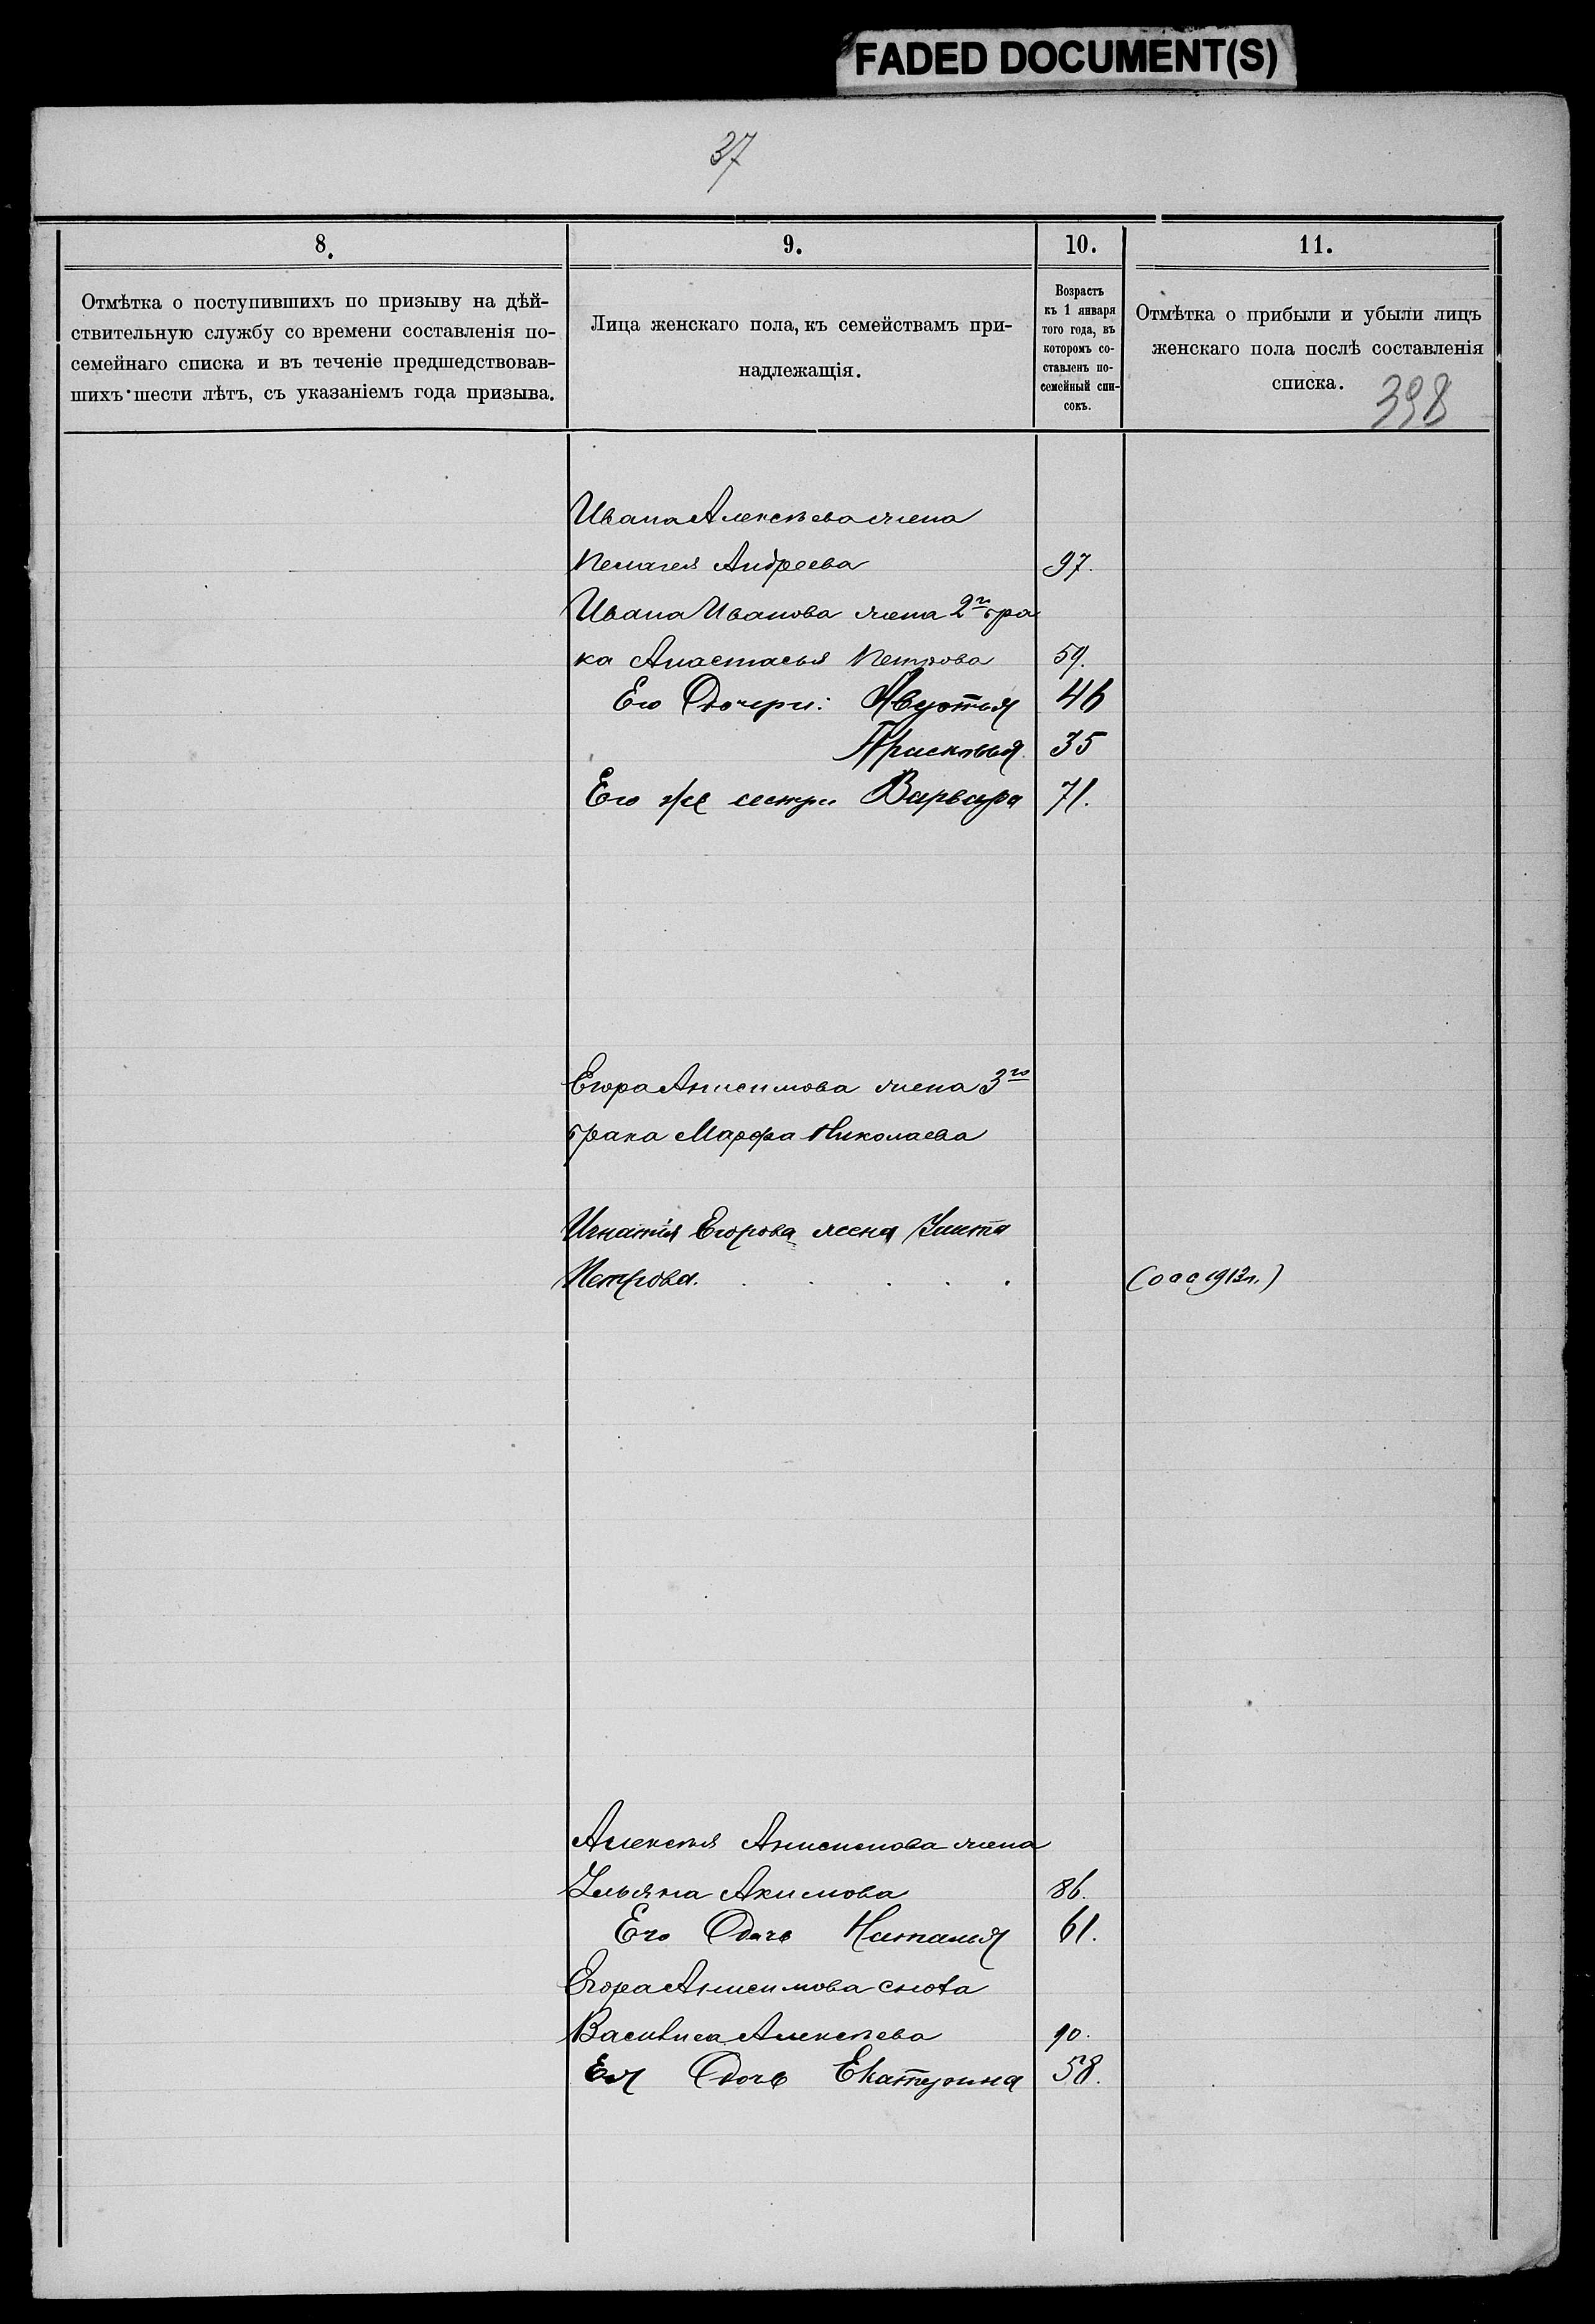 FADED DOCUMENT(S)
37
8.
Отмѣтка о поступившихъ по призыву на дѣй-
ствительную службу со времени составленія по-
семейнаго списка и въ теченіе предшедствовав-
шихъ шести лѣтъ, съ указаніемъ года призыва.
9.
Лица женскаго пола, къ семействамъ при-
надлежащія.
10.
Возрастъ
къ 1 января
того года, въ
которомъ со-
ставленъ по-
семейный спи-
сокъ.
11.
Отмѣтка о прибыли и убыли лицъ
женскаго пола послѣ составленія
списка.
398
Ивана Алексѣева жена
Пелагея Андреева 97.
Ивана Иванова жена 2го бра
ка Анастасья Петрова 59.
Его Дочери: 46
Прасковья 35
Его же сестра Варвара 71.
Егора Анисимова жена 3го
брака Марфа Николаева
Игнатія Егорова жена
Петрова.
Алексѣя Анисимова жена
Ульяна Акимова 86.
Его Дочь Наталья 61.
Егора Анисимова сноха
Василиса Алексѣева 90.
Ея Дочь Екатерина 58.